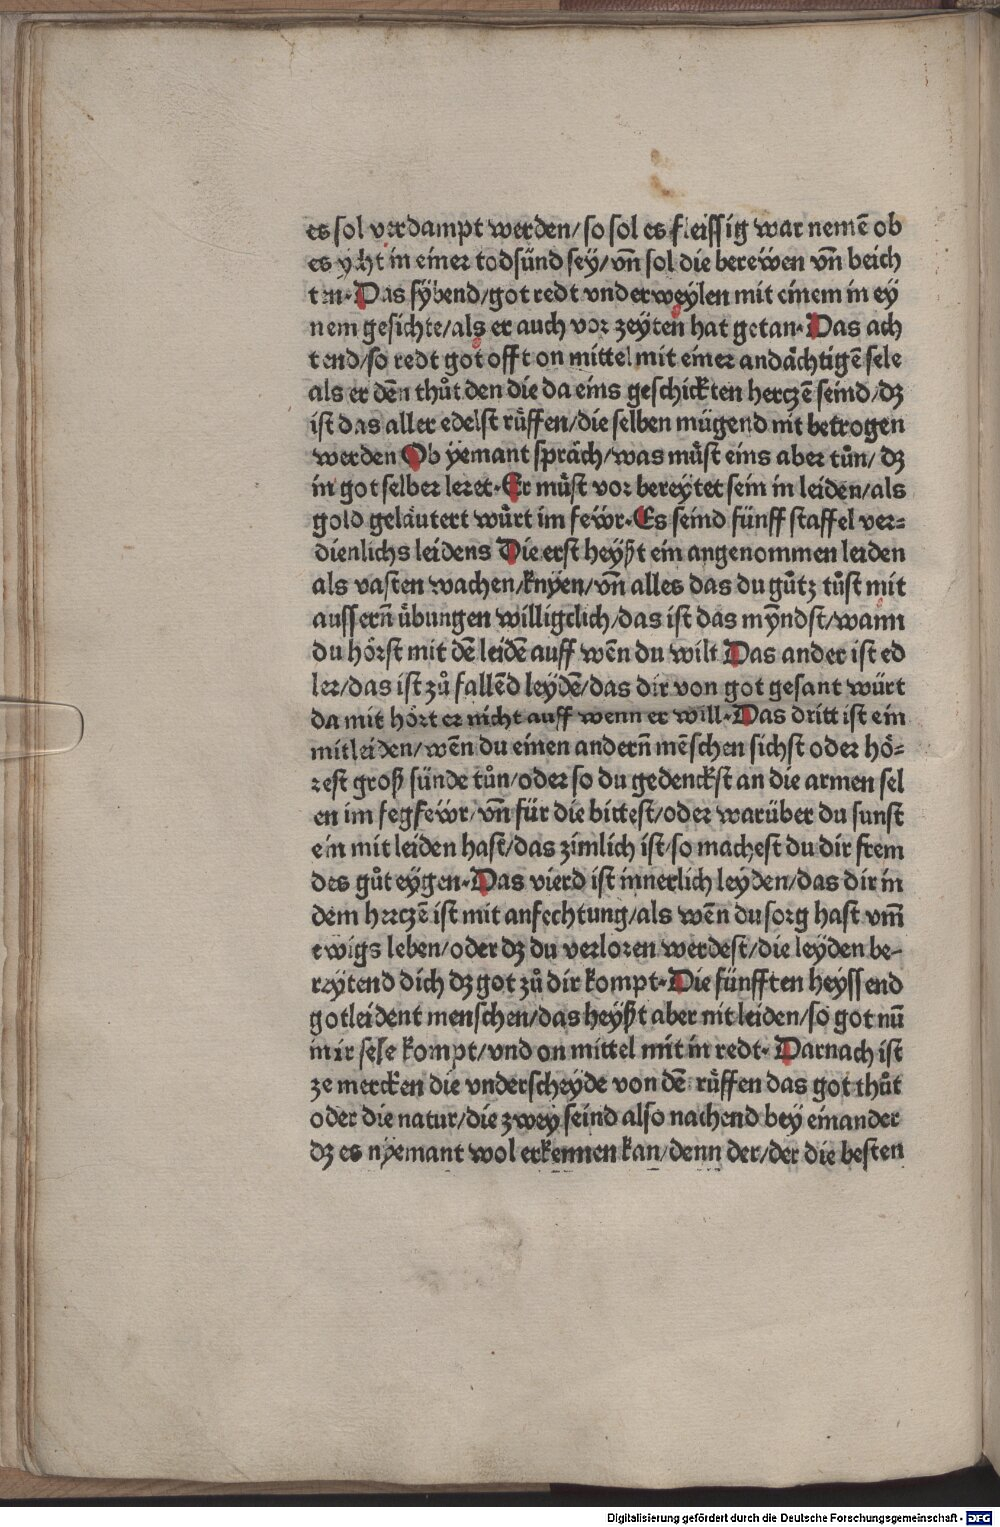 es sol verdampt werden/ so sol es fleissig war nemē ob
es ycht in einer todsünd sey/ vn̄ sol die berewen vn̄ beich
ten· Das sybend/got redt vnderweylen mit einem in ey
nem gesichte/als er auch vor zeyten hat getan· Das ach
tend/so redt got offt on mittel mit einer andächtigē sele
als er dēn thůt den die da eins geschickten herczē seind/dꝫ
ist das aller edelst rüffen/die selben mügend nit betrogen
werden Ob yemant spräch/was můst eins aber tůn/ dꝫ
in got selber leret· Er můst vor bereytet sein in leiden/als
gold geläutert würt im fewr· Es seind fünff staffel ver⸗
dienlichs leidens Die erst heyßt ein angenommen leiden
als vasten wachen/knyen/vn̄ alles das du gůtz tůst mit
aussern̄ übungen willigclich/das ist das mȳndst/wann
du hörst mit dē leidē auff wēn du wilt Das ander ist ed
ler/das ist zů fallēd leydē/das dir von got gesant würt
da mit hört er nicht auff wenn er will· Das dritt ist ein
mitleiden/wēn du einen andern̄ mēschen sichst oder hö⸗
rest groß sünde tůn/oder so du gedenckst an die armen sel
en im fegfewr/vn̄ für die bittest/oder warüber du sunst
ein mit leiden hast/das zimlich ist/so machest du dir frem
des gůt eygen· Das vierd ist innerlich leyden/das dir in
dem herczē ist mit anfechtung/als wēn du sorg hast vm̄
ewigs leben/oder dꝫ du verloren werdest/die leyden be⸗
reytend dich dꝫ got zů dir kompt· Die fünfften heyssend
gotleident menschen/das heyßt aber nit leiden/so got nū
in ir sele kompt/vnd on mittel mit in redt· Darnach ist
ze mercken die vnderscheyde von dē rüffen das got thůt
oder die natur/die zwey seind also nachend bey einander
dꝫ es nyemant wol erkennen kan/denn der/der die besten
Digitalisierung gefördert durch die Deutsche Forschungsgemeinschaft - DFG